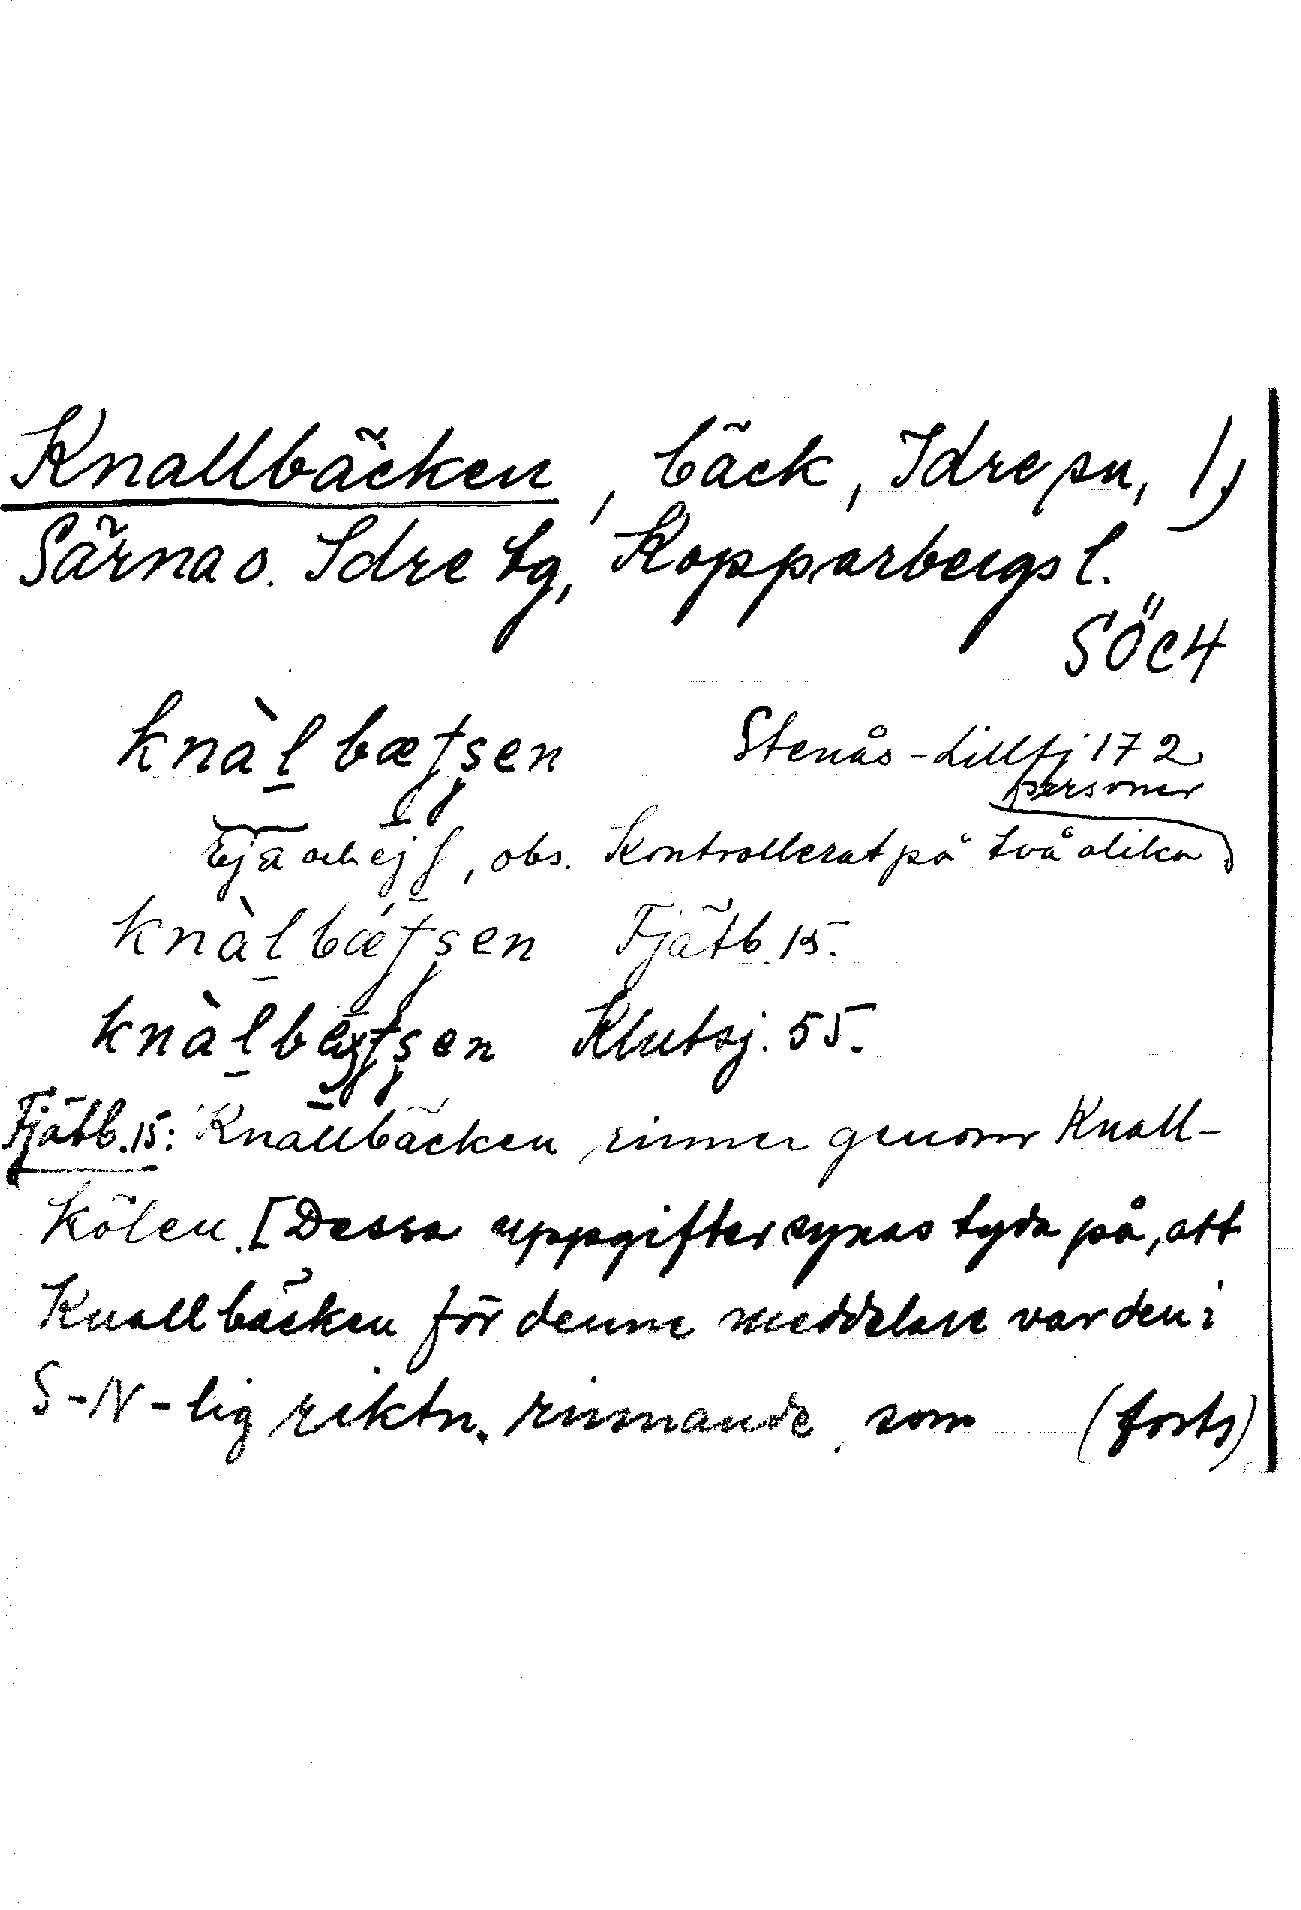 Knallbäcken, bäck, Idre sn, 1)
Särna o. Idre tg, Kopparbergs l.
SÖC4
knàl bæʈʂen Stenås-Lilltj 172
Ej a och ej ʃ, obs. Kontrollerat på två olika
personer
knàl bǽʈʂen Fjätb. 15.
knàl ʈʂen Klutsj. 55.
Fjätb. 15: Knallbäcken rinner genom Knall-
kölen. [Dessa uppgifter synas tyda på, att
Knallbäcken för denne meddelare var den i
S-N-lig riktn. rinnande som (forts)